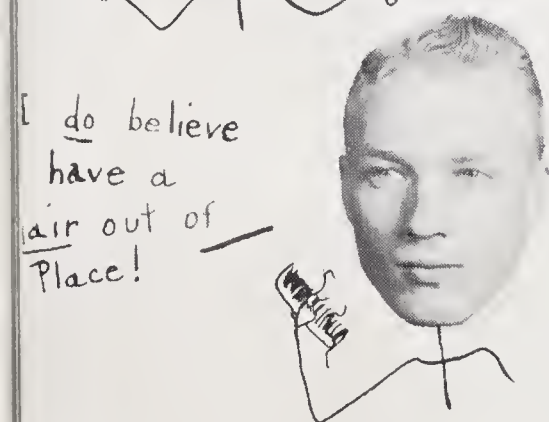 do believe
have a
air out of
Place!